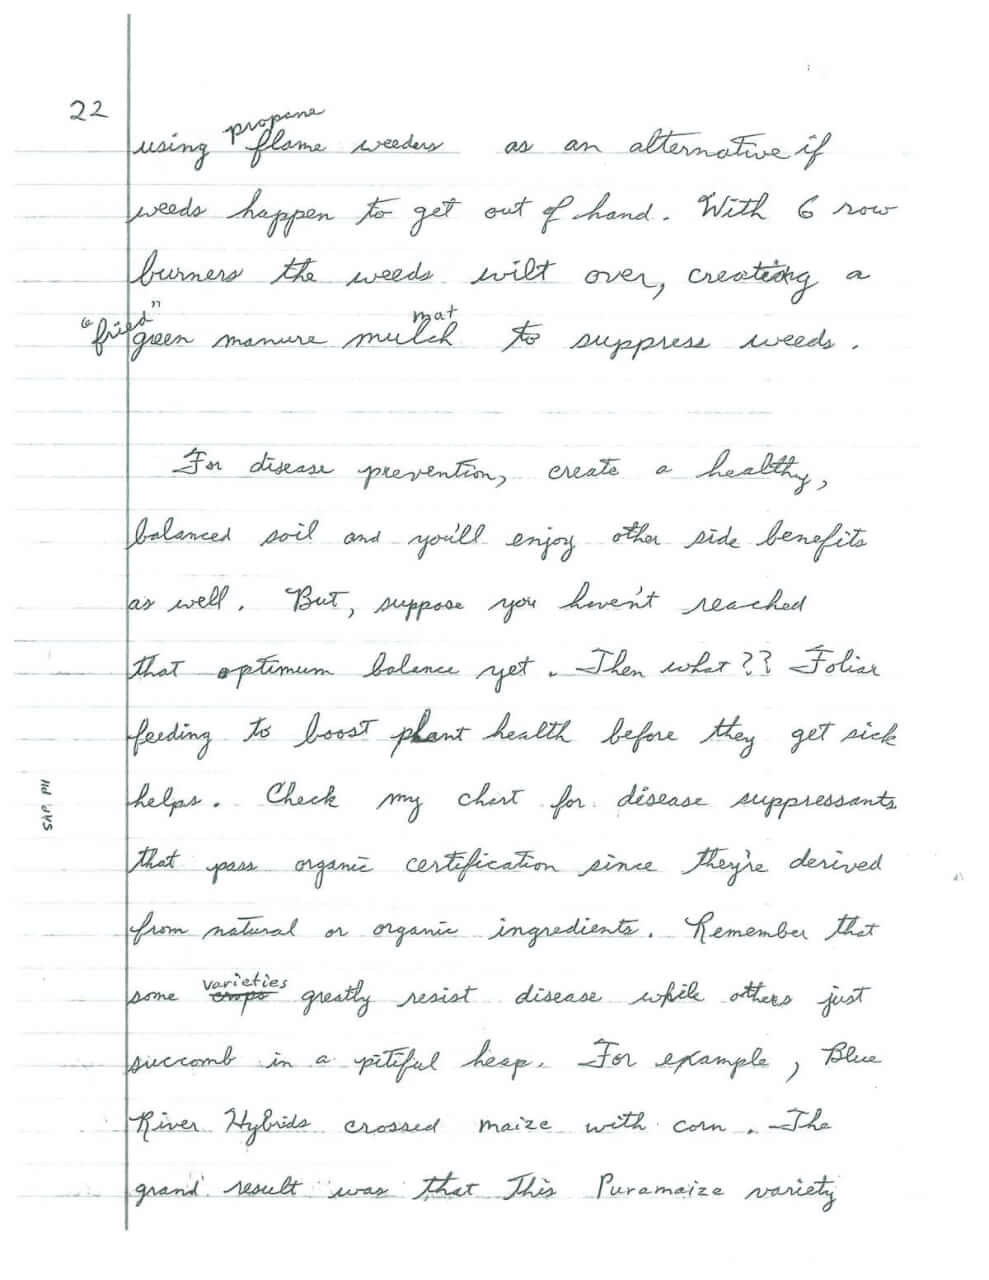 22
using propane flame weeders as an alternative if
weeds happen to get out of hand. With 6 row
burners the weeds wilt over, creating a
"fried" green manure mulch mat to suppress weeds.
For disease prevention, create a healthy,
balanced soil and you'll enjoy other side benefits
as well. But, suppose you haven't reached
that optimum balance yet. Then what?? Foliar
feeding to boost plant health before they get sick
helps. Check my chart for disease suppressants
SAP PH
that pass organic certification since they're derived
from natural or organic ingredients. Remember that
some crops varieties greatly resist disease while others just
succomb in a pitiful heap. For example, Blue
River Hybrids crossed maize with corn. The
grand result was that this Puramaize variety